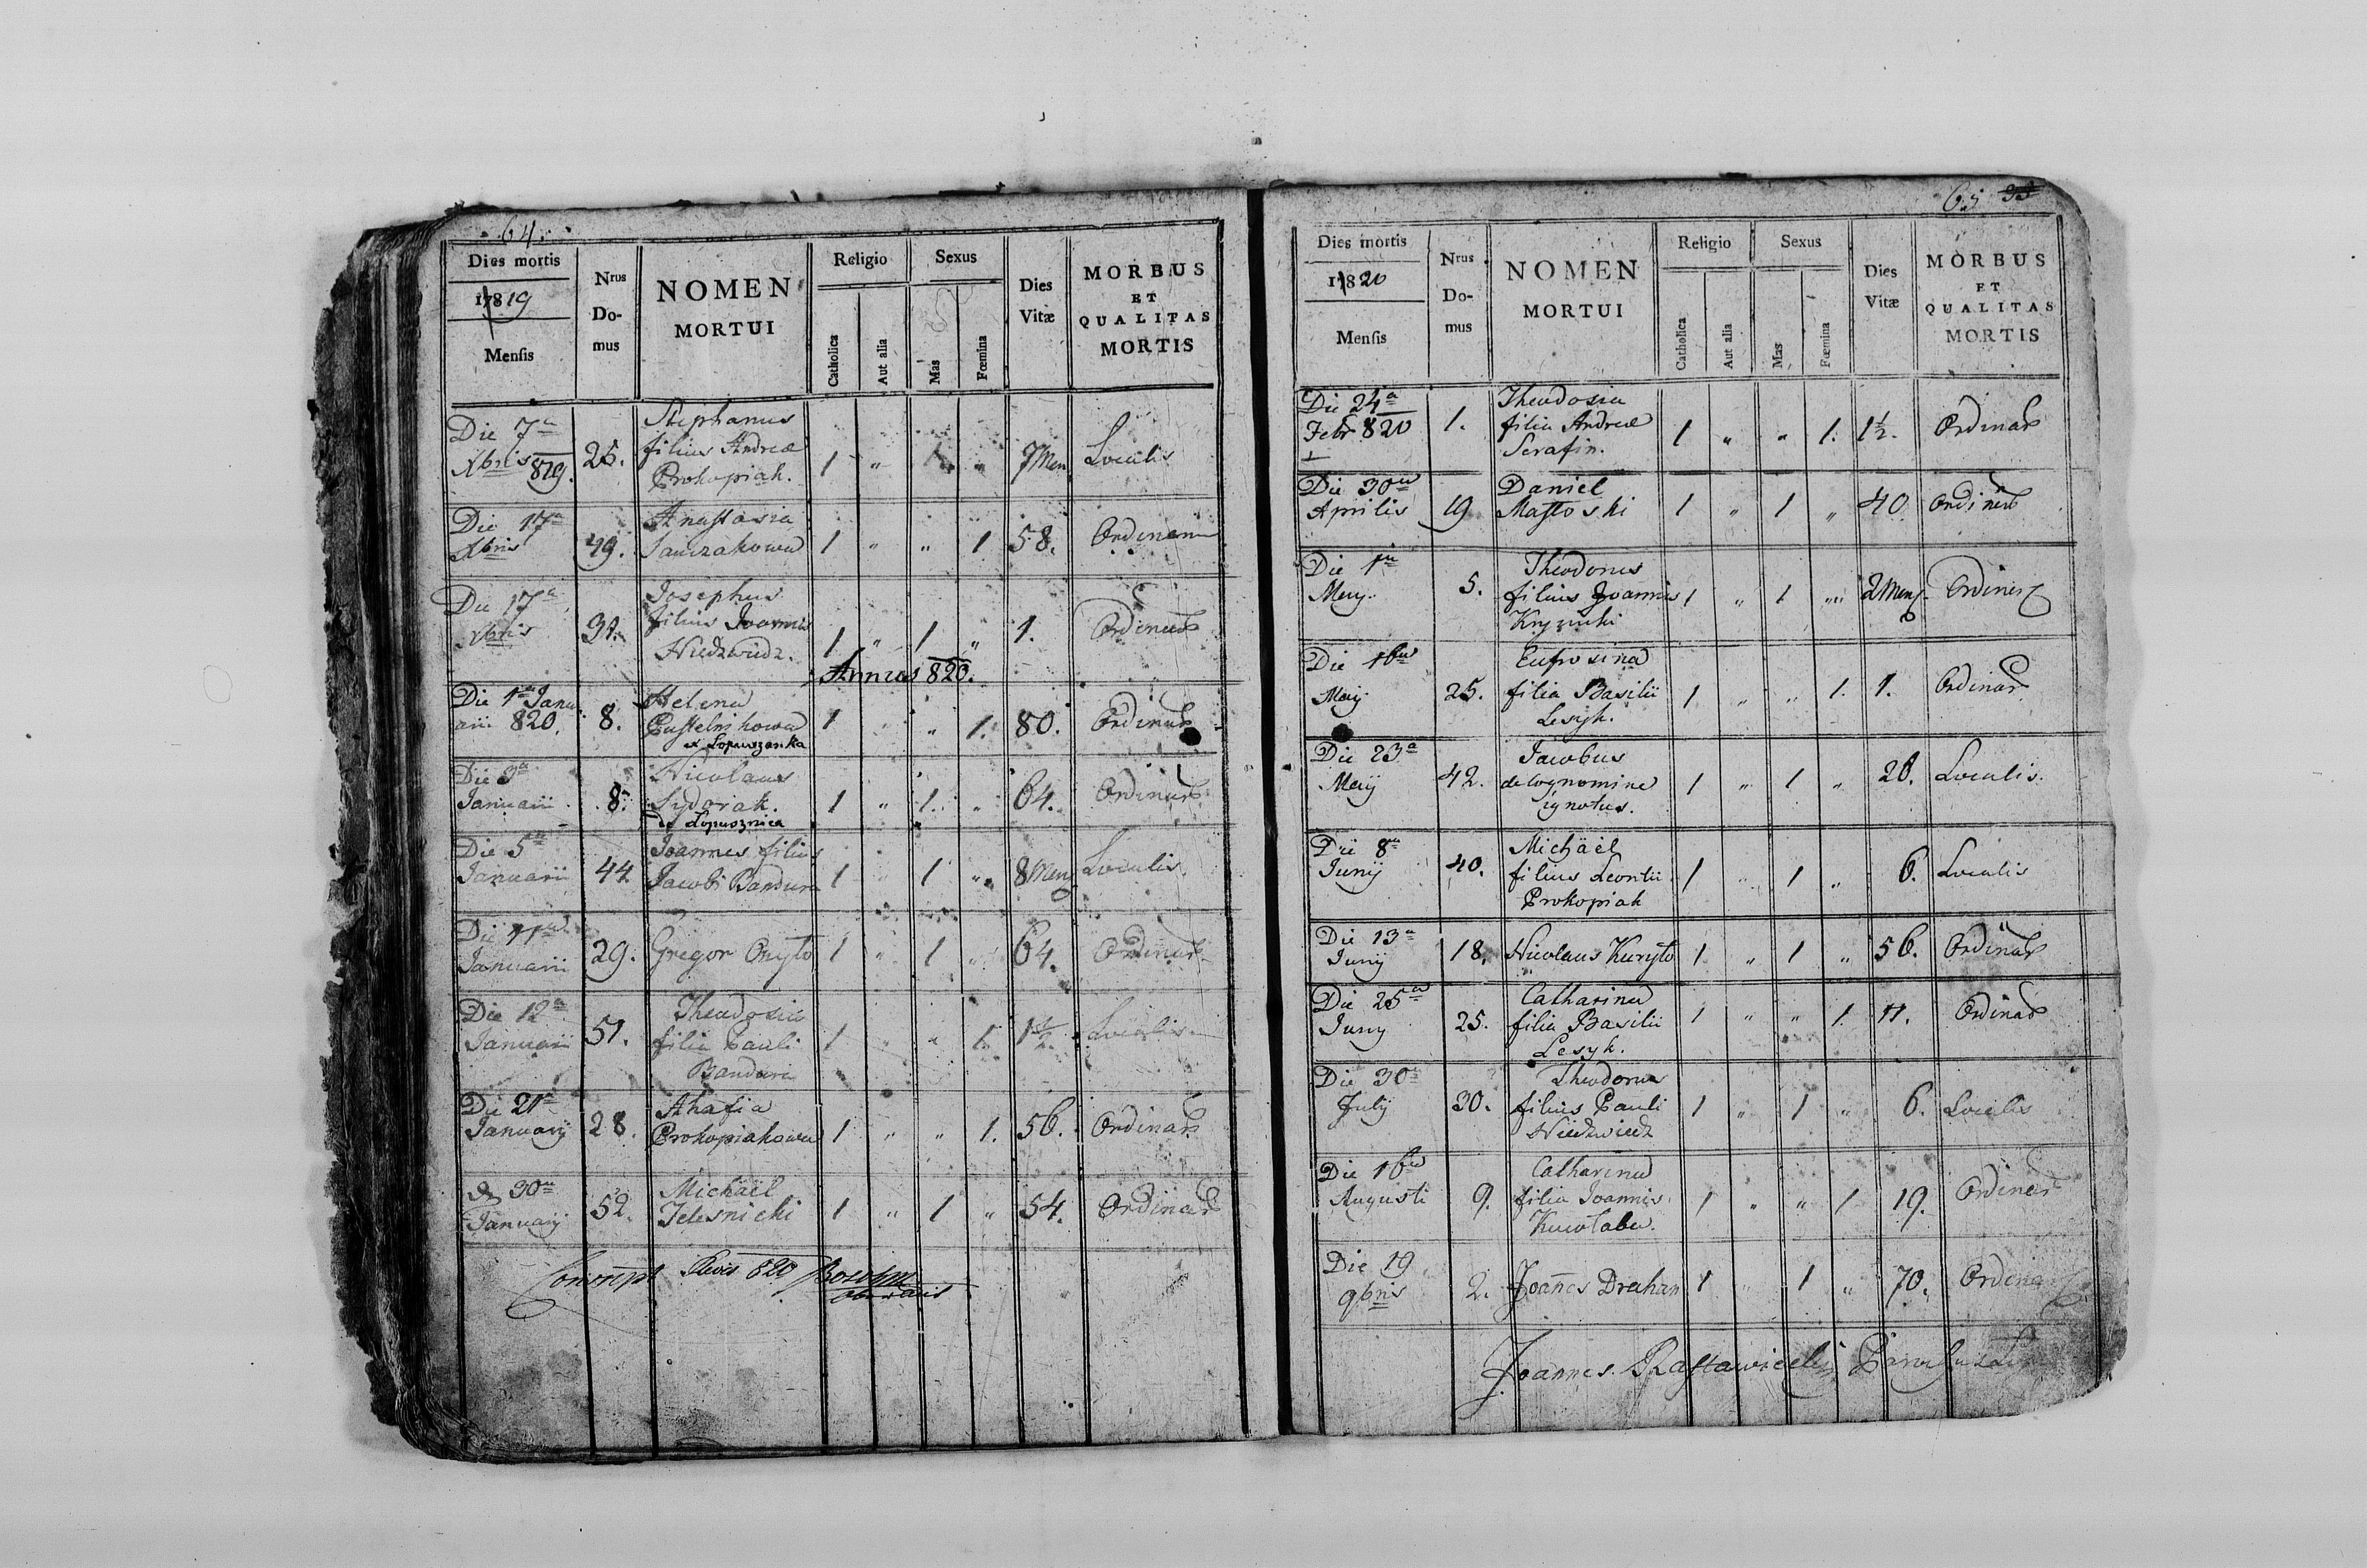 64.
Dies mortis
17819
Mensis
Nrus
Do-
mus
NOMEN
MORTUI
Religio
Catholica
Aut alia
Sexus
Mas
Fœmina
Dies
Vitæ
MORBUS
ET
QUALITAS
MORTIS
Die 7a
Xbris 819.
25.
Stephanus
filius Andreæ
Prokopiak.
1 " 1. "
7 Men
Localis
Die 17a
Xbris
49.
Anastasia
1 " " 1
58.
Ordinar
Die 17a
Xbris
31.
Josephus
filius Joannis
Niedzwidz.
1 " 1 "
1.
Ordinar
Annus 820.
Die 1a Janu
arii 820.
8.
Helena
Pustelnikowa
ex Łopuszanka
1 " 1.
80.
Ordinar
Die 3a
Januarii
8.
Nicolaus
Sydorak.
de Łopusznica
1 " 1. "
64.
Ordinar
Die 5a
Januarii
44
Joannes filius
Jacobi Bandura
1 " 1 "
8 Men
Localis
Die 11a
Januarii
29.
Gregor Onyto
1 " 1 "
64.
Ordinar
Die 12a
Januarii
51.
Theodosia
filia Pauli
Bandura
1 " " 1.
1½.
Localis
Die 21a
Januarij
28.
Ahafia
Prokopiakowa
1 " " 1.
56.
Ordinar
30a
Januarij
52.
Michaël
1 " 1 "
54.
Ordinar
820
65 33
Dies mortis
17820
Mensis
Nrus
Do-
mus
NOMEN
MORTUI
Religio
Catholica
Aut alia
Sexus
Mas
Fœmina
Dies
Vitæ
MORBUS
ET
QUALITAS
MORTIS
Die 24a
Febr 820
1.
Theodosia
filia Andreæ
Serafin.
1 " " 1.
1½.
Ordinar
Die 30a
Aprilis
19
Daniel
Mastoski
1 " 1 "
40
Ordinar
Die 1a
Maij.
5.
Theodorus
filius Joannis
1 " 1 "
2 Men
Ordinar
Die 16a
Maij
25.
Eufrosina
filia Basilii
Lesyk.
1 " " 1.
1.
Ordinar
Die 23a
Maij
42.
Jacobus
de cognomine
ignotus.
1 " 1 "
20.
Localis.
Die 8a
Junij
40.
Michäel
filius Leontii
Prokopiak
1 " 1 "
6.
Localis
Die 13a
Junij
18.
Nicolaus Kuryto
1 " 1 "
56.
Ordinar
Die 25a
Junij
25.
Catharina
filia Basilii
Lesyk.
1 " " 1.
11.
Ordinar
Die 30a
Julij
30.
Theodorus
filius Pauli
Niedzwiedz
1 " 1 "
6.
Localis
Die 16a
Augusti
9.
Catharina
filia Joannis
1 " " 1
19.
Ordinar
Die 19
9bris
2.
Joanes Drahan
1 " 1 "
70.
Ordinar
Joannes